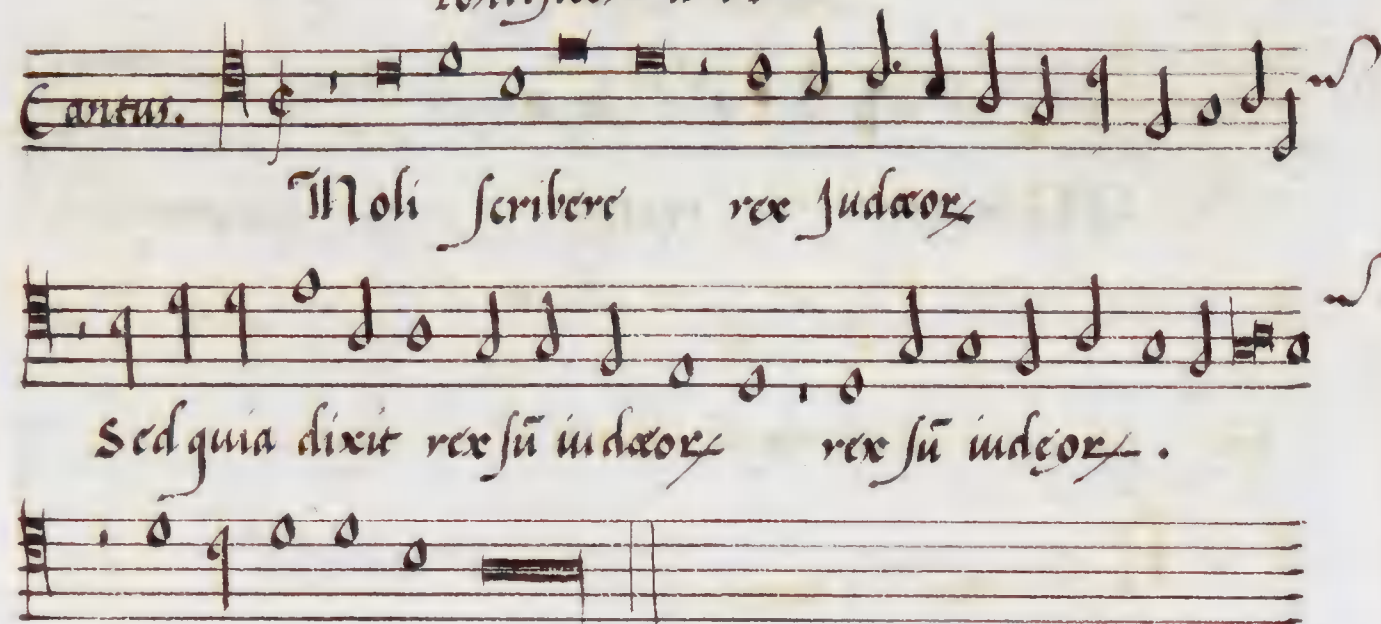 Cantus.
Noli scribere rex Judæoꝝ
Sed quia dixit rex sū iudæoꝝ rex sū iudęoꝝ.